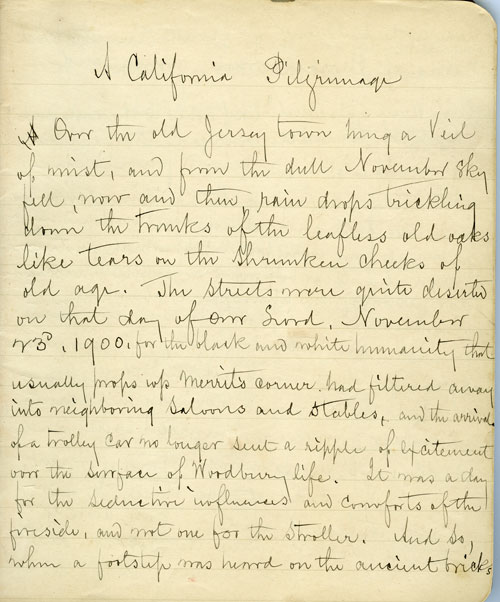 A California Pilgrimage
Over the old Jersey town hung a Veil
of mist, and from the dull November sky
fell, now and then, rain drops trickling
down the trunks of the leafless old oaks
like tears on the shrunken cheeks of
old age. The streets were quite deserted
on that day of our Lord, November
23d, 1900, for the black and white humanity that
usually props up Merritt's corner had filtered away
into neighboring saloons and stables, and the arrival
of a trolley car no longer sent a ripple of excitement
over the surface of Woodbury life. It was a day
for the seductive influences and comforts of the
fireside, and not one for the stroller. And so,
when a footstep was heard on the ancient bricks